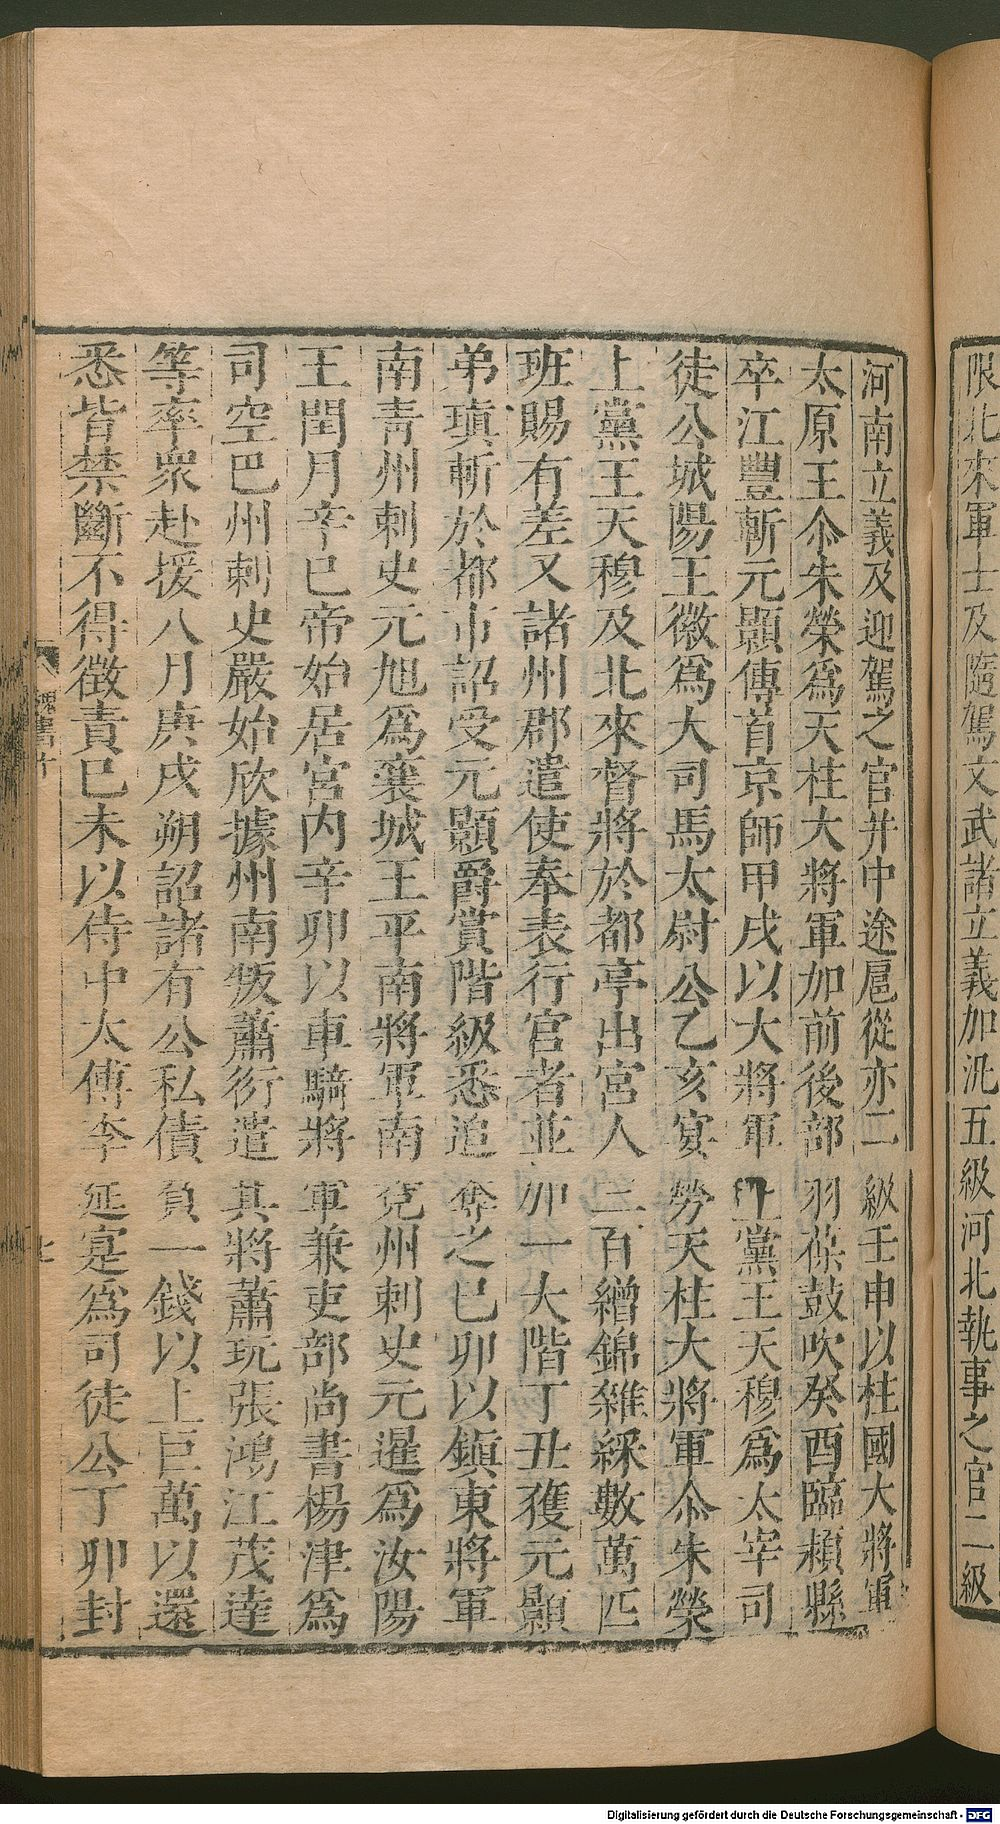 限北來軍士及隨駕文武諸立義加汎五級河北執事之官二級
河南立義及迎駕之官并中途扈從亦二級壬申以柱國大將軍
太原王尒朱榮爲天柱大將軍加前後部羽葆鼓吹癸酉臨潁縣
卒江豐斬元顥傳首京師甲戌以大將軍上黨王天穆爲太宰司
徒公城陽王徽爲大司馬太尉公乙亥宴勞天柱大將軍尒朱榮
上黨王天穆及北來督將於都亭出宮人三百繒錦雜綵數萬匹
班賜有差又諸州郡遣使奉表行宮者並加一大階丁丑獲元顥
弟瑱斬於都市詔受元顥爵賞階級悉追奪之己卯以鎮東將軍
南青州刺史元旭爲襄城王平南將軍南兗州刺史元暹爲汝陽
王閏月辛巳帝始居宮内辛卯以車騎將軍兼吏部尚書楊津爲
司空巴州刺史嚴始欣據州南叛蕭衍遣其將蕭玩張鴻江茂達
等率衆赴援八月庚戌朔詔諸有公私債負一錢以上巨萬以還
悉皆禁斷不得徵責已未以侍中太傅李延寔爲司徒公丁卯封
魏書十
七
Digitalisierung gefördert durch die Deutsche Forschungsgemeinschaft - DFG